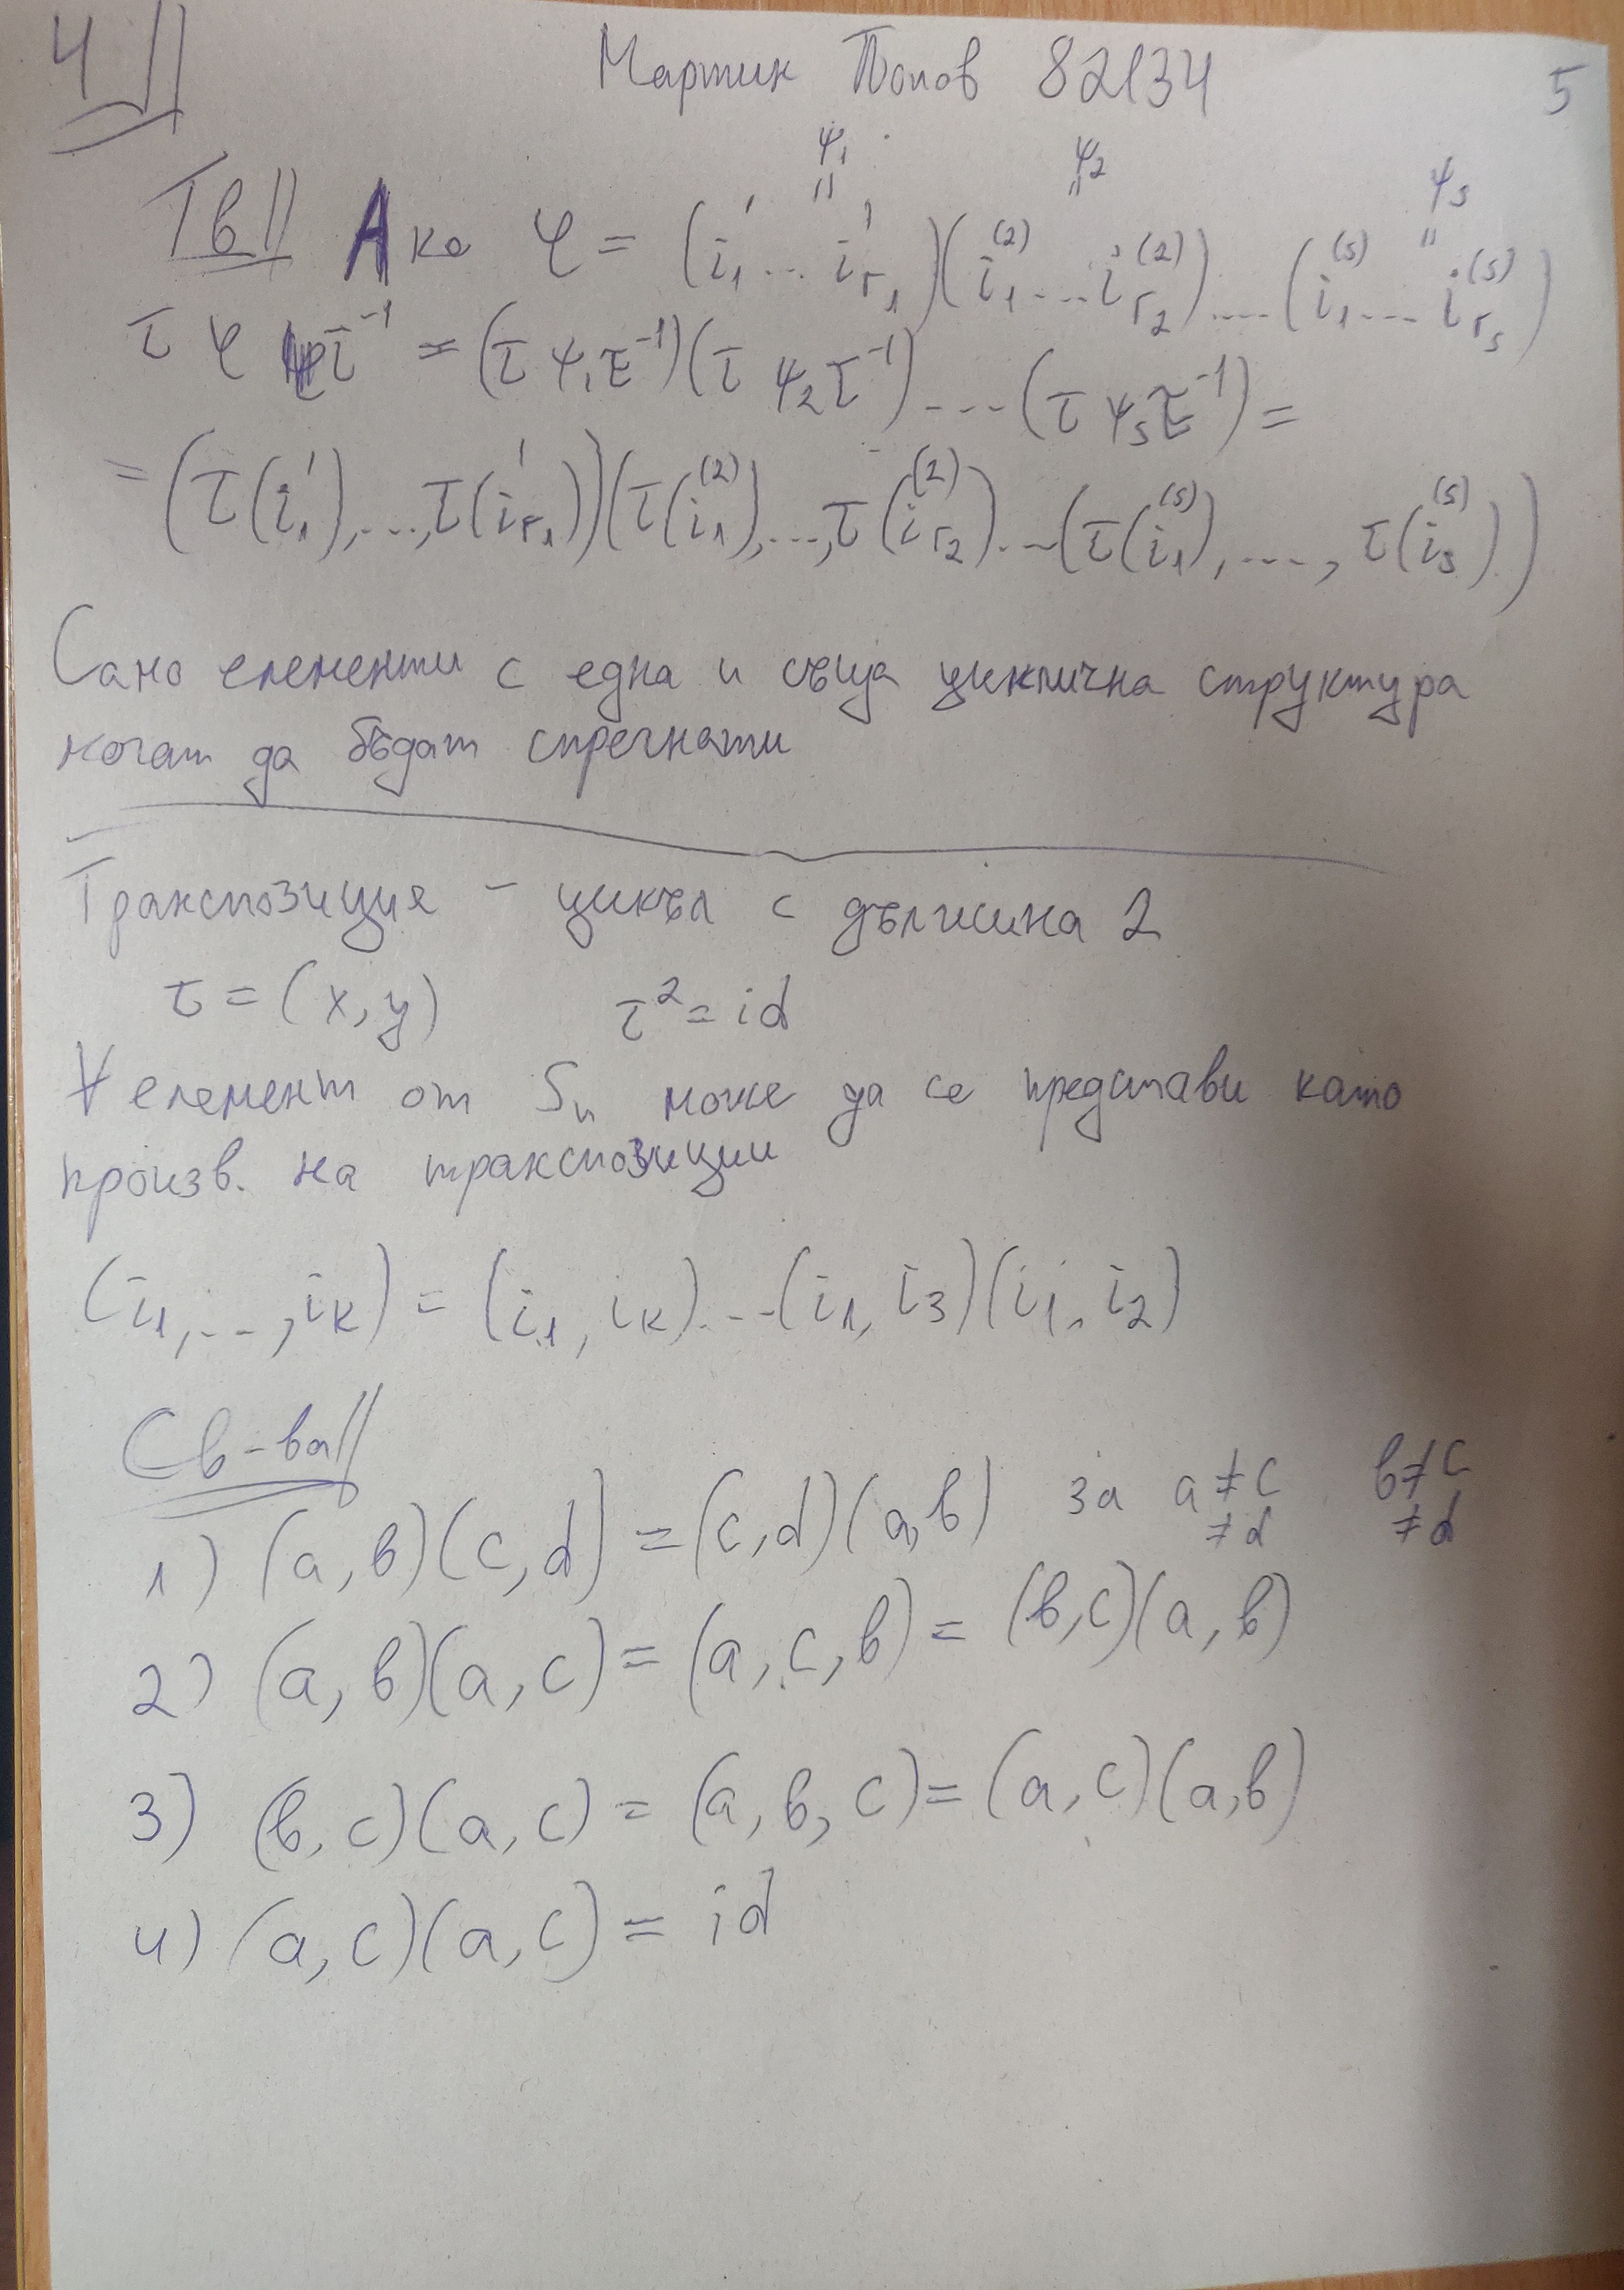 4 Мартин Попов 82134 5
ψ₁ ψ₂ ψₛ
Тв Ако φ = (i₁' ... i'ᵣ₁)(i₁⁽²⁾ ... iᵣ₂⁽²⁾) .... (i₁⁽ˢ⁾ .... iᵣₛ⁽ˢ⁾)
τ φ τ⁻¹ = (τ ψ₁ τ⁻¹)(τ ψ₂ τ⁻¹) .... (τ ψₛ τ⁻¹) =
= (τ(i₁'), ..., τ(i'ᵣ₁))(τ(i₁⁽²⁾), ..., τ(iᵣ₂⁽²⁾) ... (τ(i₁⁽ˢ⁾), ...., τ(iₛ⁽ˢ⁾))
Само елементи с една и съща циклична структура
могат да бъдат спрегнати
Транспозиция - цикъл с дължина 2
τ = (x, y) τ² = id
∀ елемент от Sₙ може да се представи като
произв. на транспозиции
(i₁, ..., iₖ) = (i₁, iₖ) ... (i₁, i₃)(i₁, i₂)
Св-ва
1) (a, b)(c, d) = (c, d)(a, b) за a ≠ c b ≠ c
≠ d ≠ d
2) (a, b)(a, c) = (a, c, b) = (b, c)(a, b)
3) (b, c)(a, c) = (a, b, c) = (a, c)(a, b)
4) (a, c)(a, c) = id